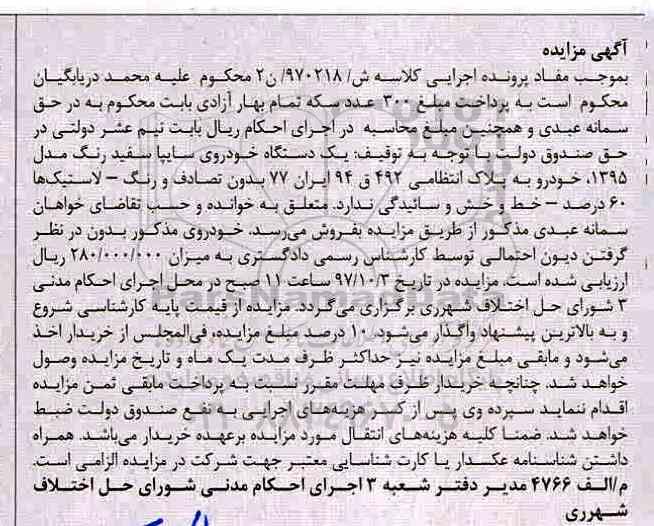 آگهی مزایده
بموجب مفاد پرونده اجرایی کلاسه ش/ ۹۷۰۲۱۸/ ن۲ محکوم علیه محمد دریابگیان
محکوم است به پرداخت مبلغ ۳۰۰ عدد سکه تمام بهار آزادی بابت محکوم به در حق
سمانه عبدی و همچنین مبلغ محاسبه در اجرای احکام ریال بابت نیم عشر دولتی در
حق صندوق دولت با توجه به توقیف: یک دستگاه خودروی سایپا سفید رنگ مدل
۱۳۹۵، خودرو به پلاک انتظامی ۴۹۲ ق ۹۴ ایران ۷۷ بدون تصادف و رنگ – لاستیک‌ها
۶۰ درصد – خط و خش و سائیدگی ندارد. متعلق به خوانده و حسب تقاضای خواهان
سمانه عبدی مذکور از طریق مزایده بفروش می‌رسد. خودروی مذکور بدون در نظر
گرفتن دیون احتمالی توسط کارشناس رسمی دادگستری به میزان ۲۸۰/۰۰۰/۰۰۰ ریال
ارزیابی شده است. مزایده در تاریخ ۹۷/۱۰/۳ ساعت ۱۱ صبح در محل اجرای احکام مدنی
۳ شورای حل اختلاف شهرری برگزاری می‌گردد. مزایده از قیمت پایه کارشناسی شروع
و به بالاترین پیشنهاد واگذار می‌شود. ۱۰ درصد مبلغ مزایده، فی‌المجلس از خریدار اخذ
می‌شود و مابقی مبلغ مزایده نیز حداکثر ظرف مدت یک ماه و تاریخ مزایده وصول
خواهد شد. چنانچه خریدار ظرف مهلت مقرر نسبت به پرداخت مابقی ثمن مزایده
اقدام ننماید سپرده وی پس از کسر هزینه‌های اجرایی به نفع صندوق دولت ضبط
خواهد شد. ضمنا کلیه هزینه‌های انتقال مورد مزایده برعهده خریدار می‌باشد. همراه
داشتن شناسنامه عکدار یا کارت شناسایی معتبر جهت شرکت در مزایده الزامی است.
م/الف ۴۷۶۶ مدیر دفتر شعبه ۳ اجرای احکام مدنی شورای حل اختلاف
شهرری